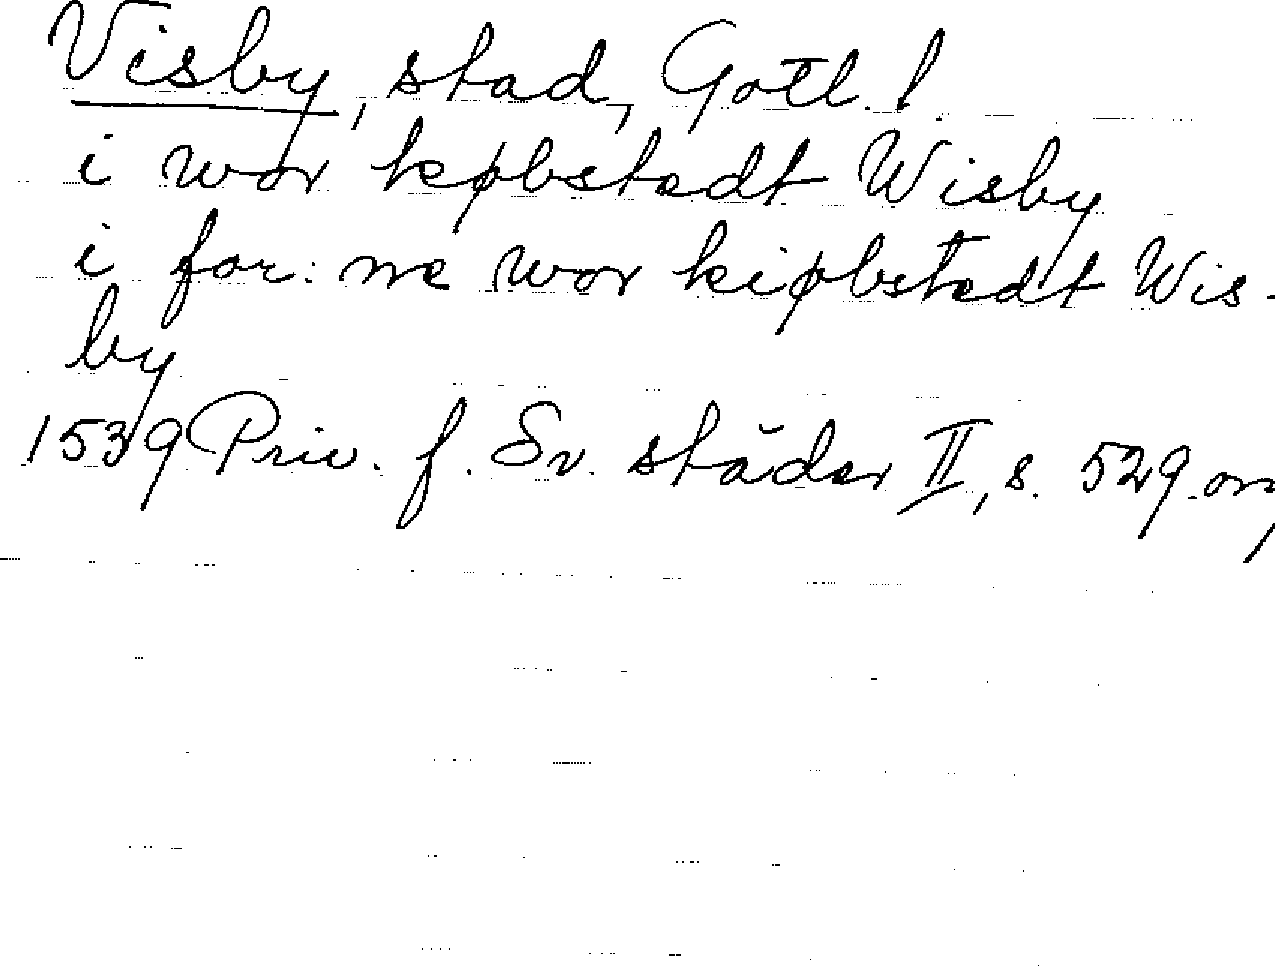 Visby, stad, Gotl. l.
i wor køpbstedt Wisby
i for: ne wor kiøbstedt Wis-
by
1539 Priv. f. Sv. städer II, s. 529 or,